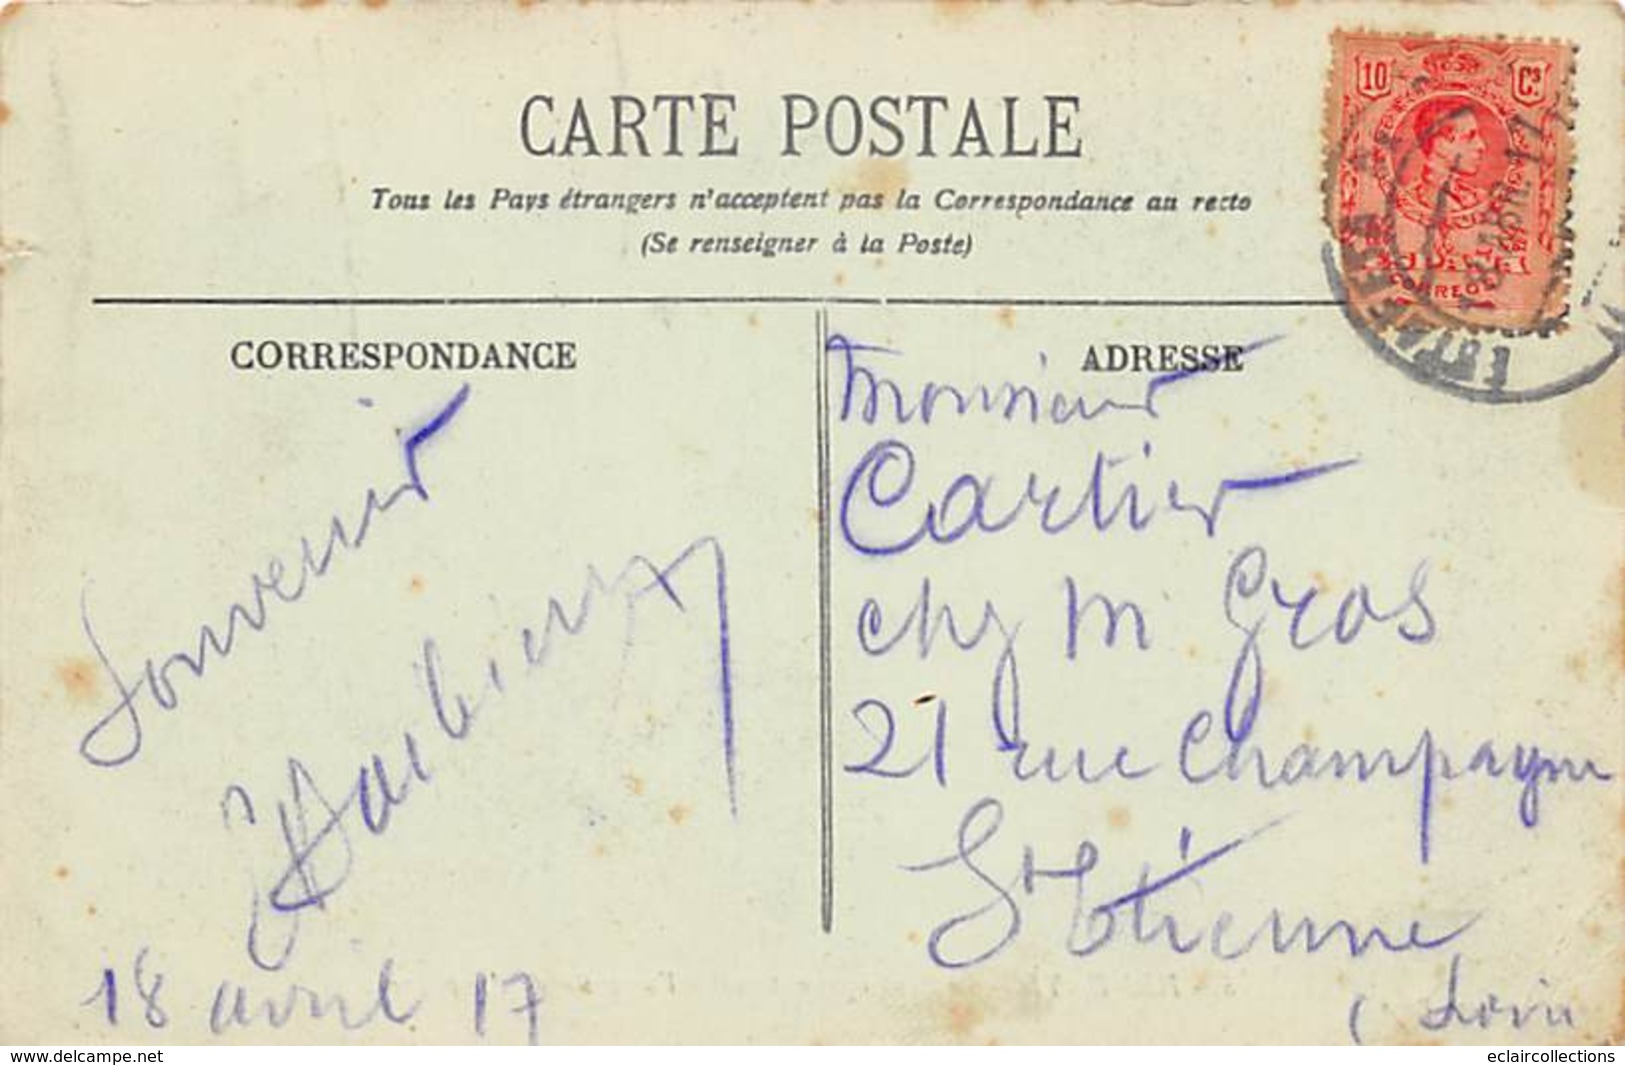 CARTE POSTALE
Tous les Pays étrangers n'acceptent pas la Correspondance au recto
(Se renseigner à la Poste)
10 Cs
CORREOS
CORRESPONDANCE
ADRESSE
Souvenir
18 avril 17
Monsieur
Cartier
chez M Gros
21 rue Champagne
St Etienne
(Loire
www.delcampe.net
eclaircollections